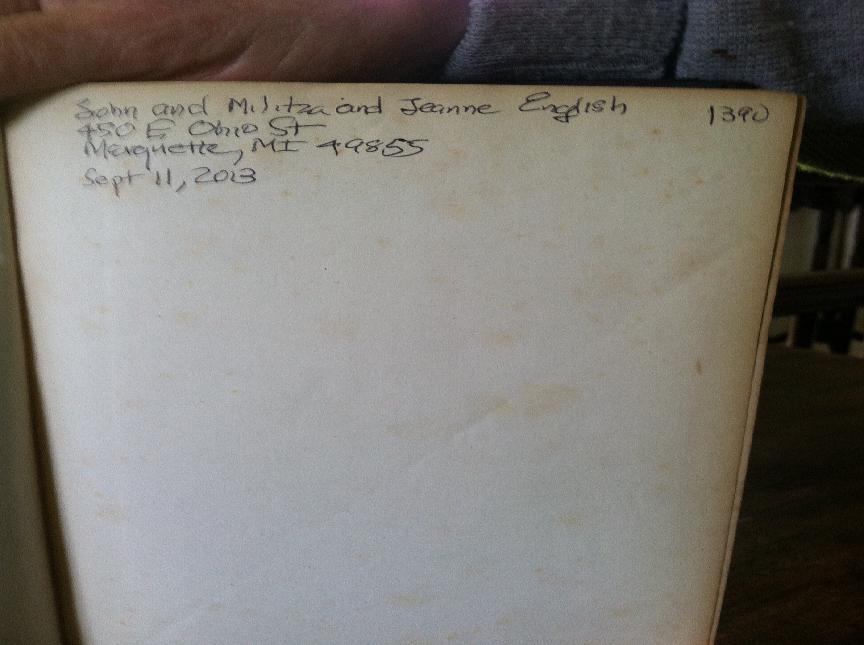 John and Militza and Jeanne English 1390
450 E Ohio St
Marquette, MI 49855
Sept 11, 2013